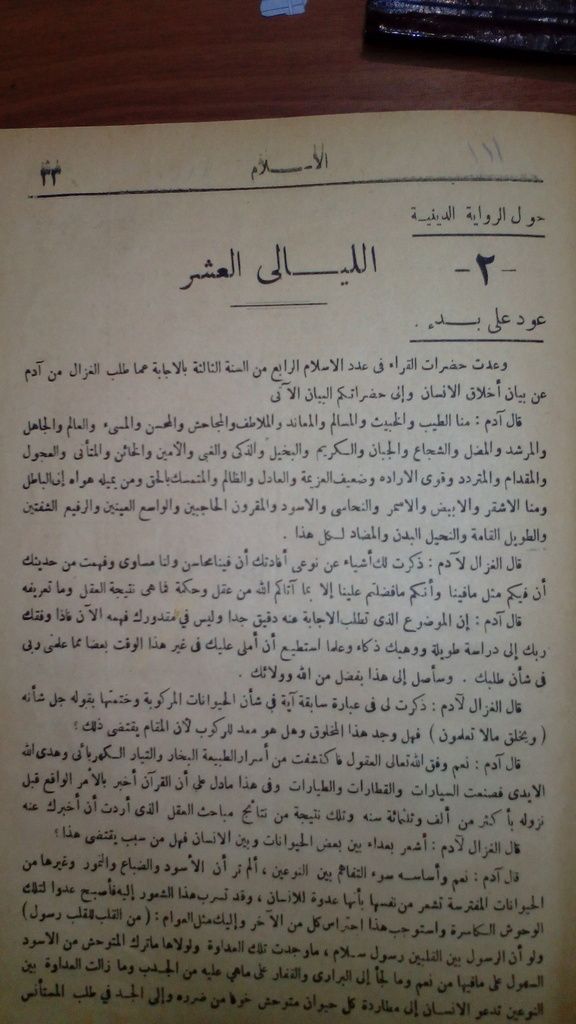 ٣٣
الاســـلام
١١١
حول الرواية الدينيـة
- ٢ - الليـــالى العشر
عود على بــدء .
وعدت حضرات القراء فى عدد الاسلام الرابع من السنة الثالثة بالاجابة عما طلب الغزال من آدم
عن بيان أخلاق الانسان وإلى حضراتكم البيان الآتى
قال آدم : منا الطيب والخبيث والمسالم والمعاند والملاطف والمجاحش والمحسن والمسىء والعالم والجاهل
والمرشد والمضل والشجاع والجبان والكريم والبخيل والذكى والغبى والأمين والخائن والمتأنى والعجول
والمقدام والمتردد وقوى الاراده وضعيف العزيمة والعادل والظالم والمتمسك بالحق ومن يميله هواه إلى الباطل
ومنا الاشقر والابيض والاسمر والنحاسى والاسود والمقرون الحاجبين والواسع العينين والرفيع الشفتين
والطويل القامة والنحيل البدن والمضاد لـكل هذا .
قال الغزال لآدم : ذكرت لك أشياء عن نوعى أفادتك أن فينا محاسن ولنا مساوى وفهمت من حديثك
أن فيكم مثل مافينا وأنكم مافضلتم علينا إلا بما آتاكم الله من عقل وحكمة فما هى نتيجة العقل وما تعريفه
قال آدم : إن الموضوع الذى تطلب الاجابة عنه دقيق جدا وليس فى مقدورك فهمه الآن فاذا وفقك
ربك إلى دراسة طويلة ووهبك ذكاء وعلما استطيع أن أملى عليك فى غير هذا الوقت بعضا مما علمنى ربى
فى شأن طلبك . وسأصل إلى هذا بفضل من الله وولائك .
قال الغزال لآدم : ذكرت لى فى عبارة سابقة آية فى شأن الحيوانات المركوبة وختمتها بقوله جل شأنه
( ويخلق مالا تعلمون ) فهل وجد هذا المخلوق وهل هو معد للركوب لأن المقام يقتضى ذلك ؟
قال آدم : نعم وفق الله تعالى العقول فاكتشفت من أسرار الطبيعة البخار والتيار الكهربائى وهدى الله
الايدى فصنعت السيارات والقطارات والطيارات وفى هذا مادل على أن القرآن أخبر بالأمر الواقع قبل
نزوله بأكثر من ألف وثلثمائة سنه وتلك نتيجة من نتائج مباحث العقل الذى أردت أن أخبرك عنه
قال الغزال لآدم : أشعر بعداء بين بعض الحيوانات وبين الانسان فهل من سبب يقتضى هذا ؟
قال آدم : نعم وأساسه سوء التفاهم بين النوعين ، ألم تر أن الأسود والضباع والنمور وغيرها من
الحيوانات المفترسة تشعر من نفسها بأنها عدوة للانسان ، وقد تسرب هذا الشعور إليه فأصبح عدوا لتلك
الوحوش الكاسرة واستوجب هذا احتراس كل من الآخر وإليك مثل العوام : ( من القلب للقلب رسول )
ولو أن الرسول بين القلبين رسول سلام ، ماوجدت تلك العداوة ولولاها ماترك المتوحش من الاسود
السهول على مافيها من نعم وما لجأ إلى البرارى والقفار على ماهى عليه من الجدب وما زالت العداوة بين
النوعين تدعو الانسان إلى مطاردة كل حيوان متوحش خوفا من ضرره وإلى الجد فى طلب المستأنس